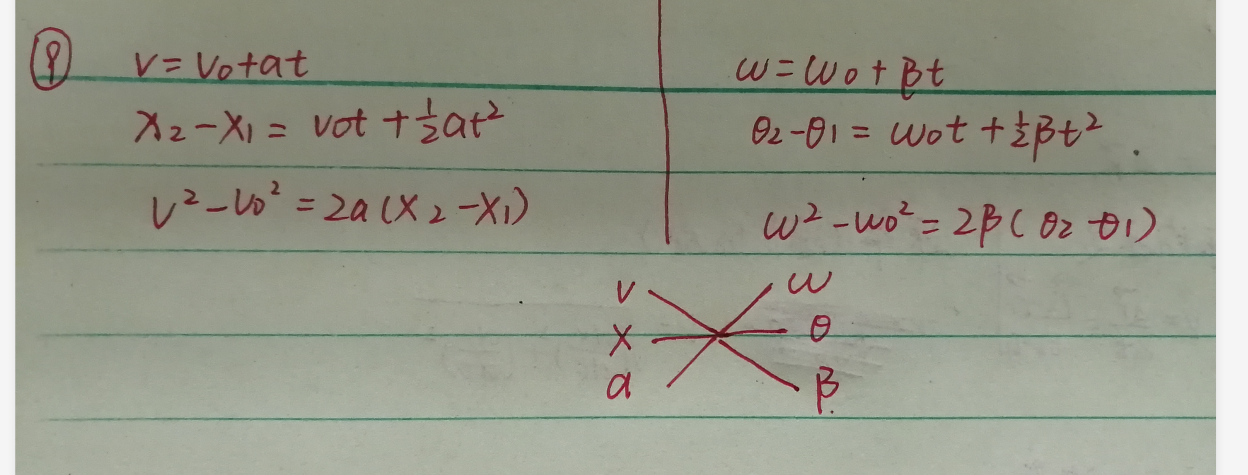 ⑨
v = v₀ + at
x₂ - x₁ = v₀t + ½at²
v² - v₀² = 2a(x₂ - x₁)
ω = ω₀ + βt
θ₂ - θ₁ = ω₀t + ½βt²
ω² - ω₀² = 2β(θ₂ - θ₁)
v ω
x θ
a β